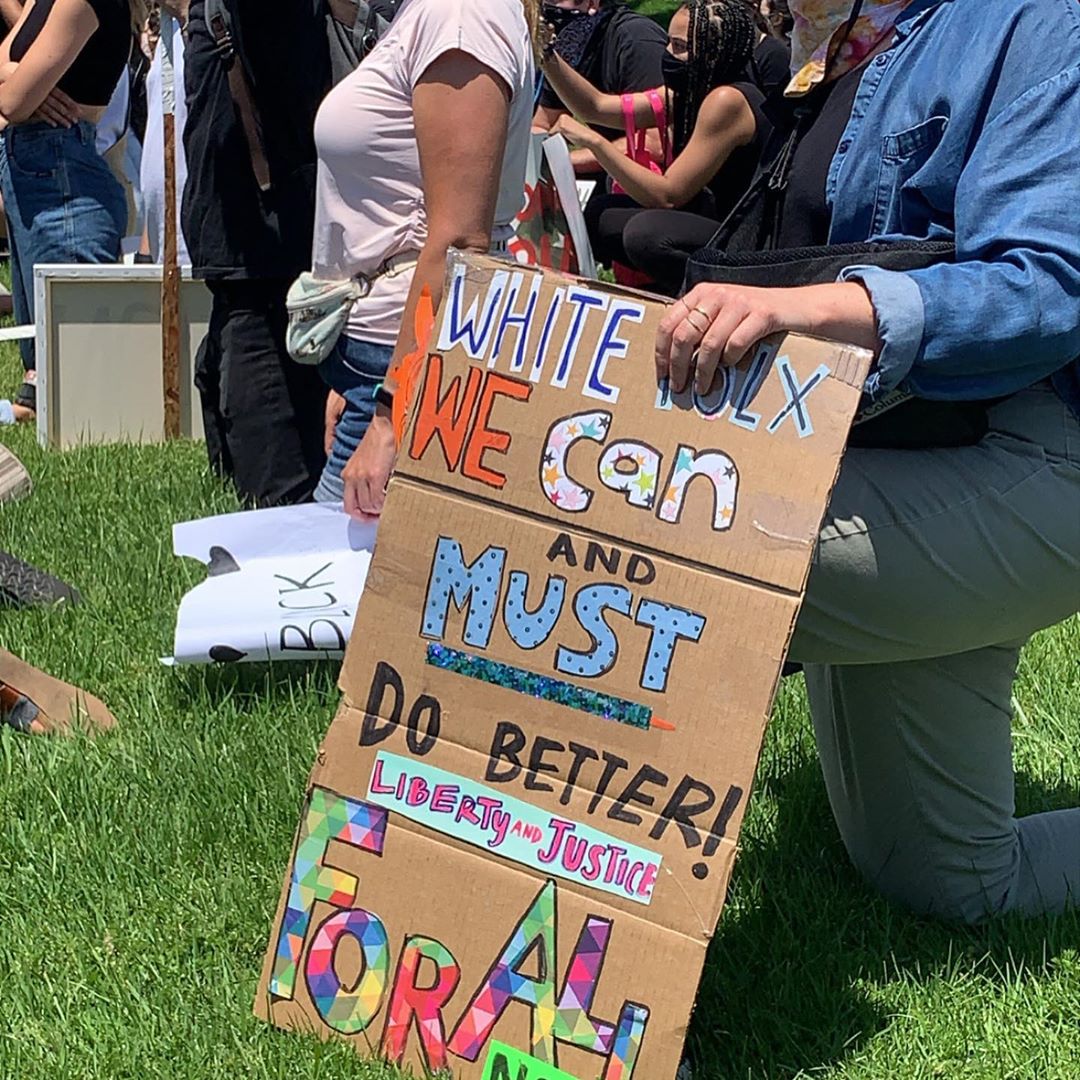 WHITE FOLX
WE Can
AND
MUST
DO BETTER!
LIBERTY AND JUSTICE
FOR ALL
BLCK
Columbia